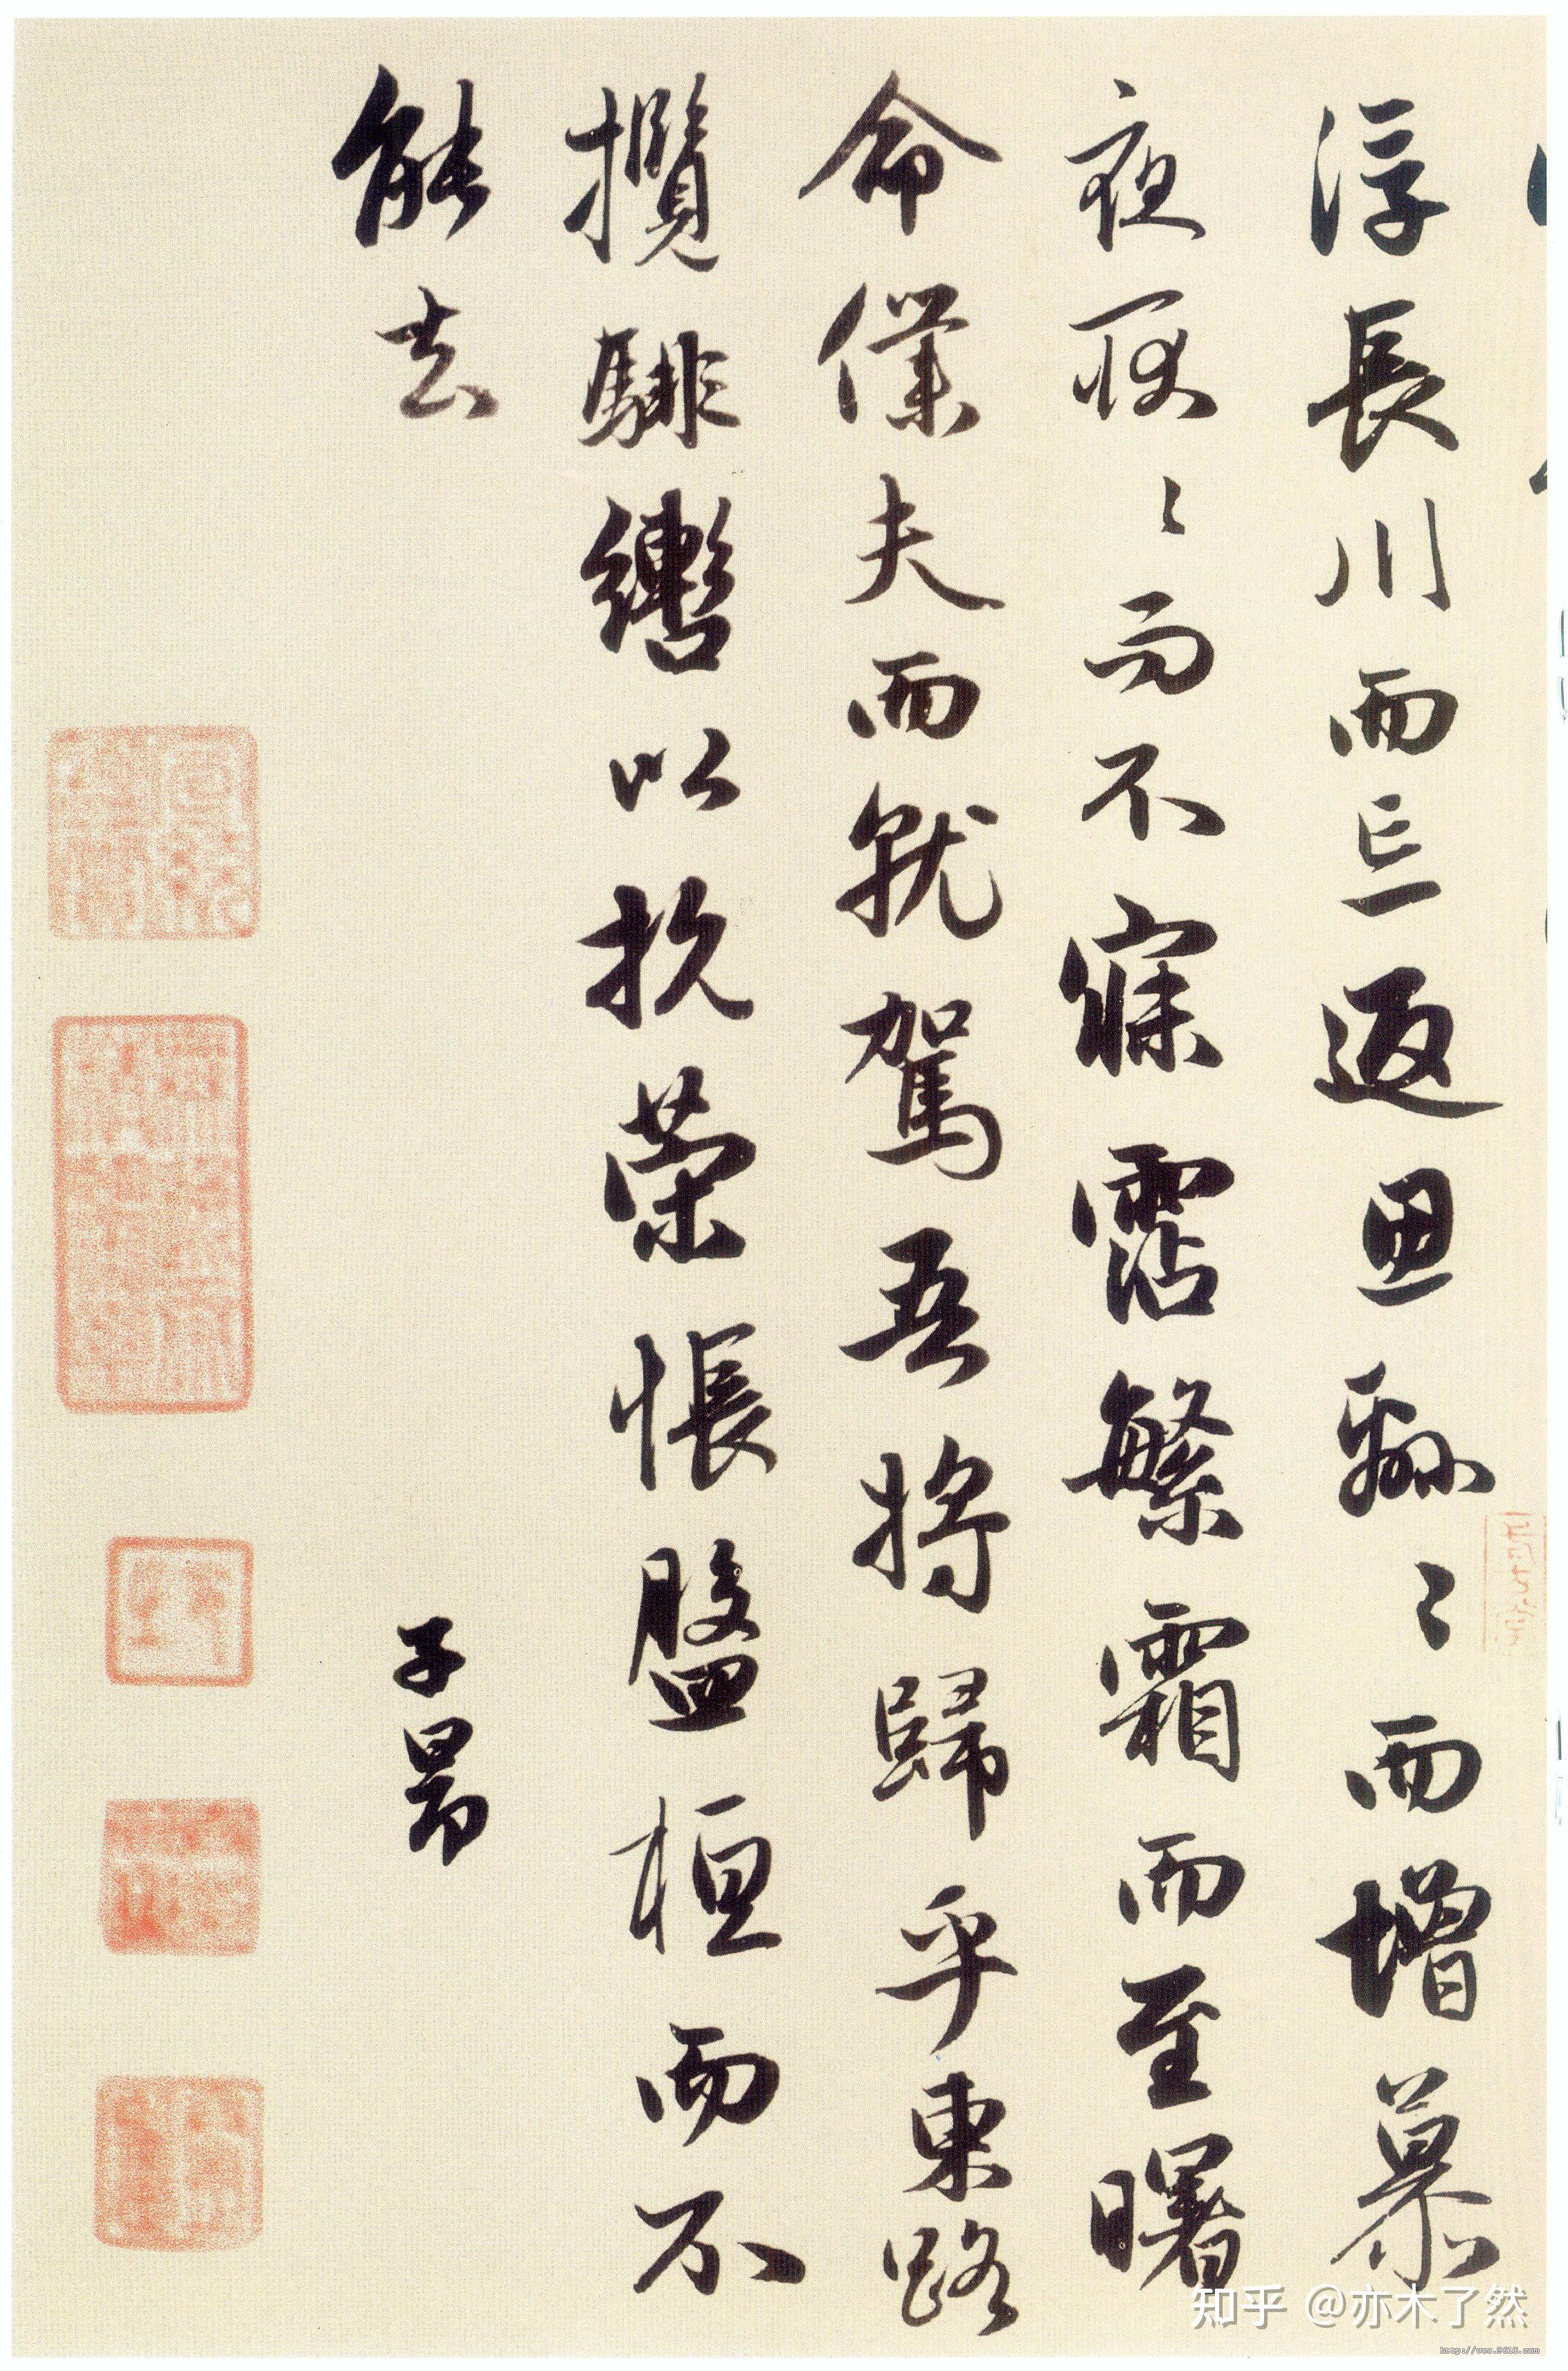 浮長川而忘返思緜〻而增慕
夜耿〻而不寐霑繁霜而至曙
命僕夫而就駕吾將歸乎東路
攬騑轡以抗策悵盤桓而不
能去
子昂
知乎 @亦木了然
http://www.9610.com